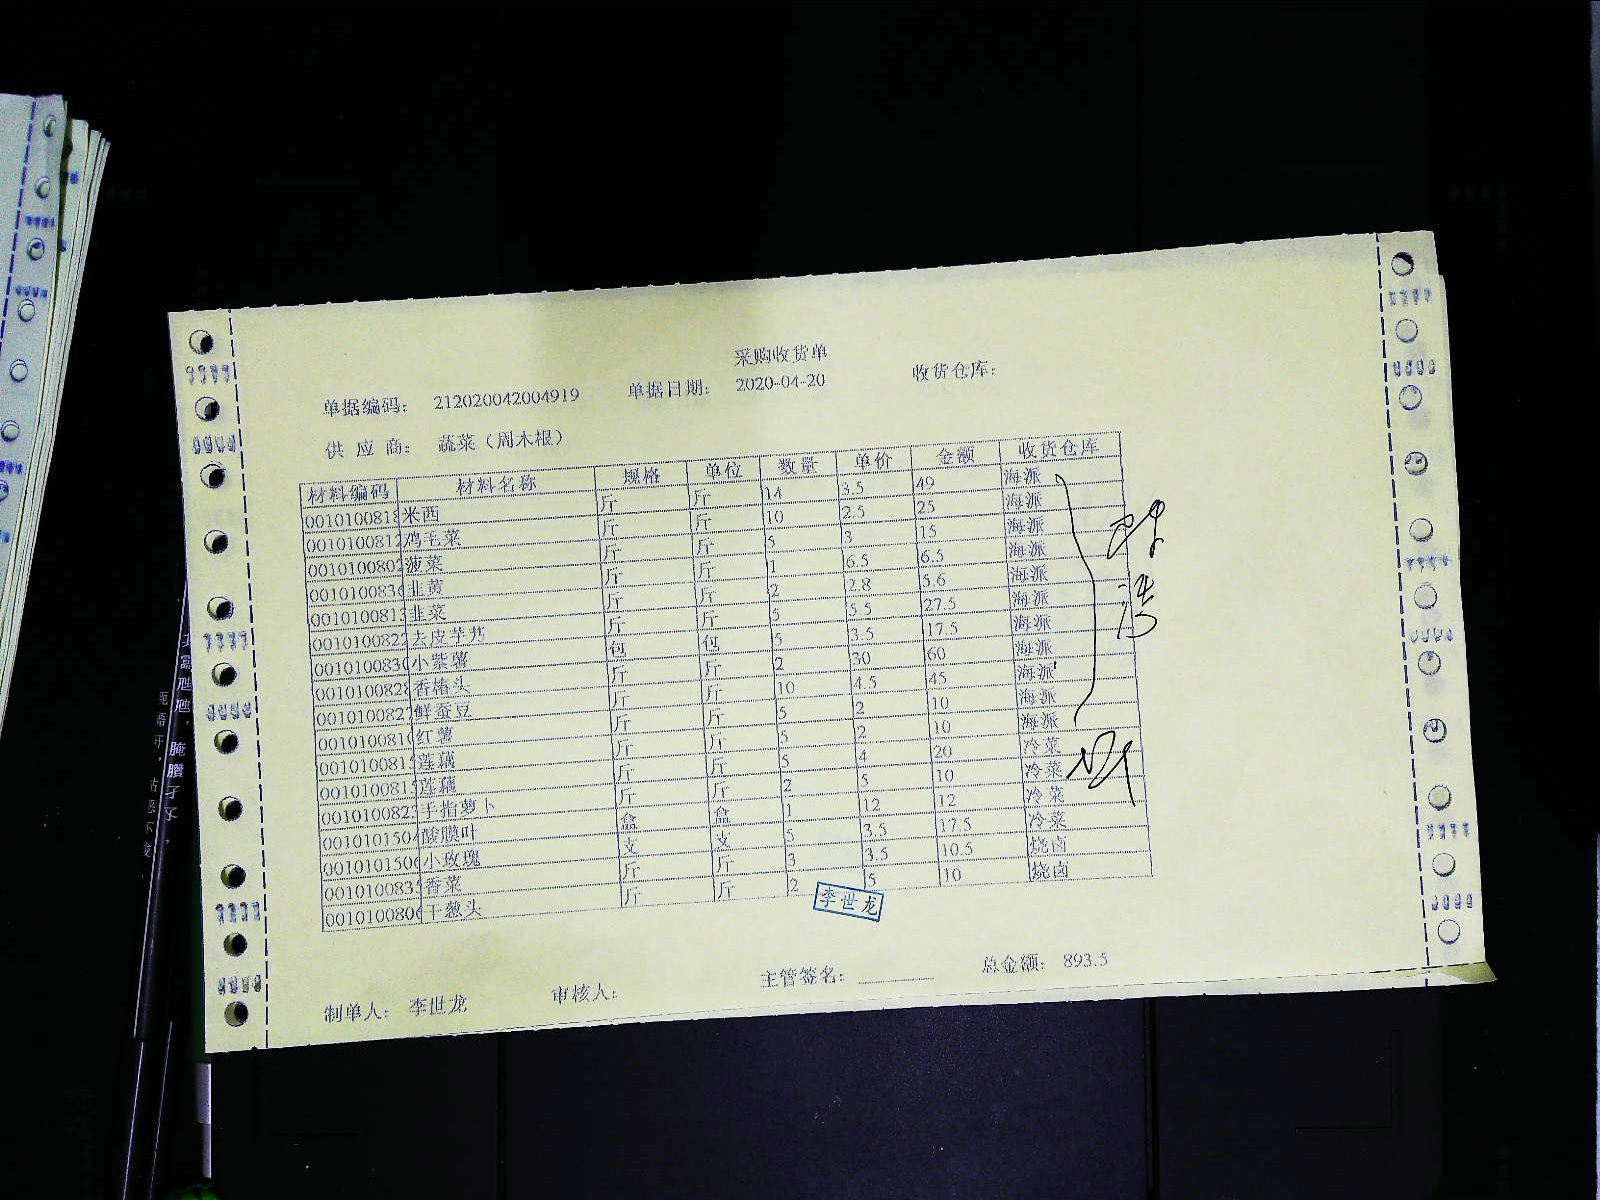 采购收货单
单据编码： 212020042004919 单据日期： 2020-04-20 收货仓库：
供 应 商： 蔬菜（周木根）
材料编码 材料名称 规格 单位 数量 单价 金额 收货仓库
001010081 米西 斤 斤 14 3.5 49 海派
001010081 鸡毛菜 斤 斤 10 2.5 25 海派
001010080 菠菜 斤 斤 5 3 15 海派
001010083 韭黄 斤 斤 1 6.5 6.5 海派
001010081 韭菜 斤 斤 2 2.8 5.6 海派
001010082 去皮芋艿 斤 斤 5 5.5 27.5 海派
001010083 小紫薯 包 包 5 3.5 17.5 海派
001010082 香椿头 斤 斤 2 30 60 海派
001010082 鲜蚕豆 斤 斤 10 4.5 45 海派
001010081 红薯 斤 斤 5 2 10 海派
001010081 莲藕 斤 斤 5 2 10 海派
001010081 莲藕 斤 斤 5 4 20 冷菜
001010082 手指萝卜 斤 斤 2 5 10 冷菜
001010150 酸膜叶 盒 盒 1 12 12 冷菜
001010150 小玫瑰 支 支 5 3.5 17.5 冷菜
001010083 香菜 斤 斤 3 3.5 10.5 烧卤
001010080 干葱头 斤 斤 2 5 10 烧卤
李世龙
制单人： 李世龙 审核人： 主管签名： 总金额： 893.5